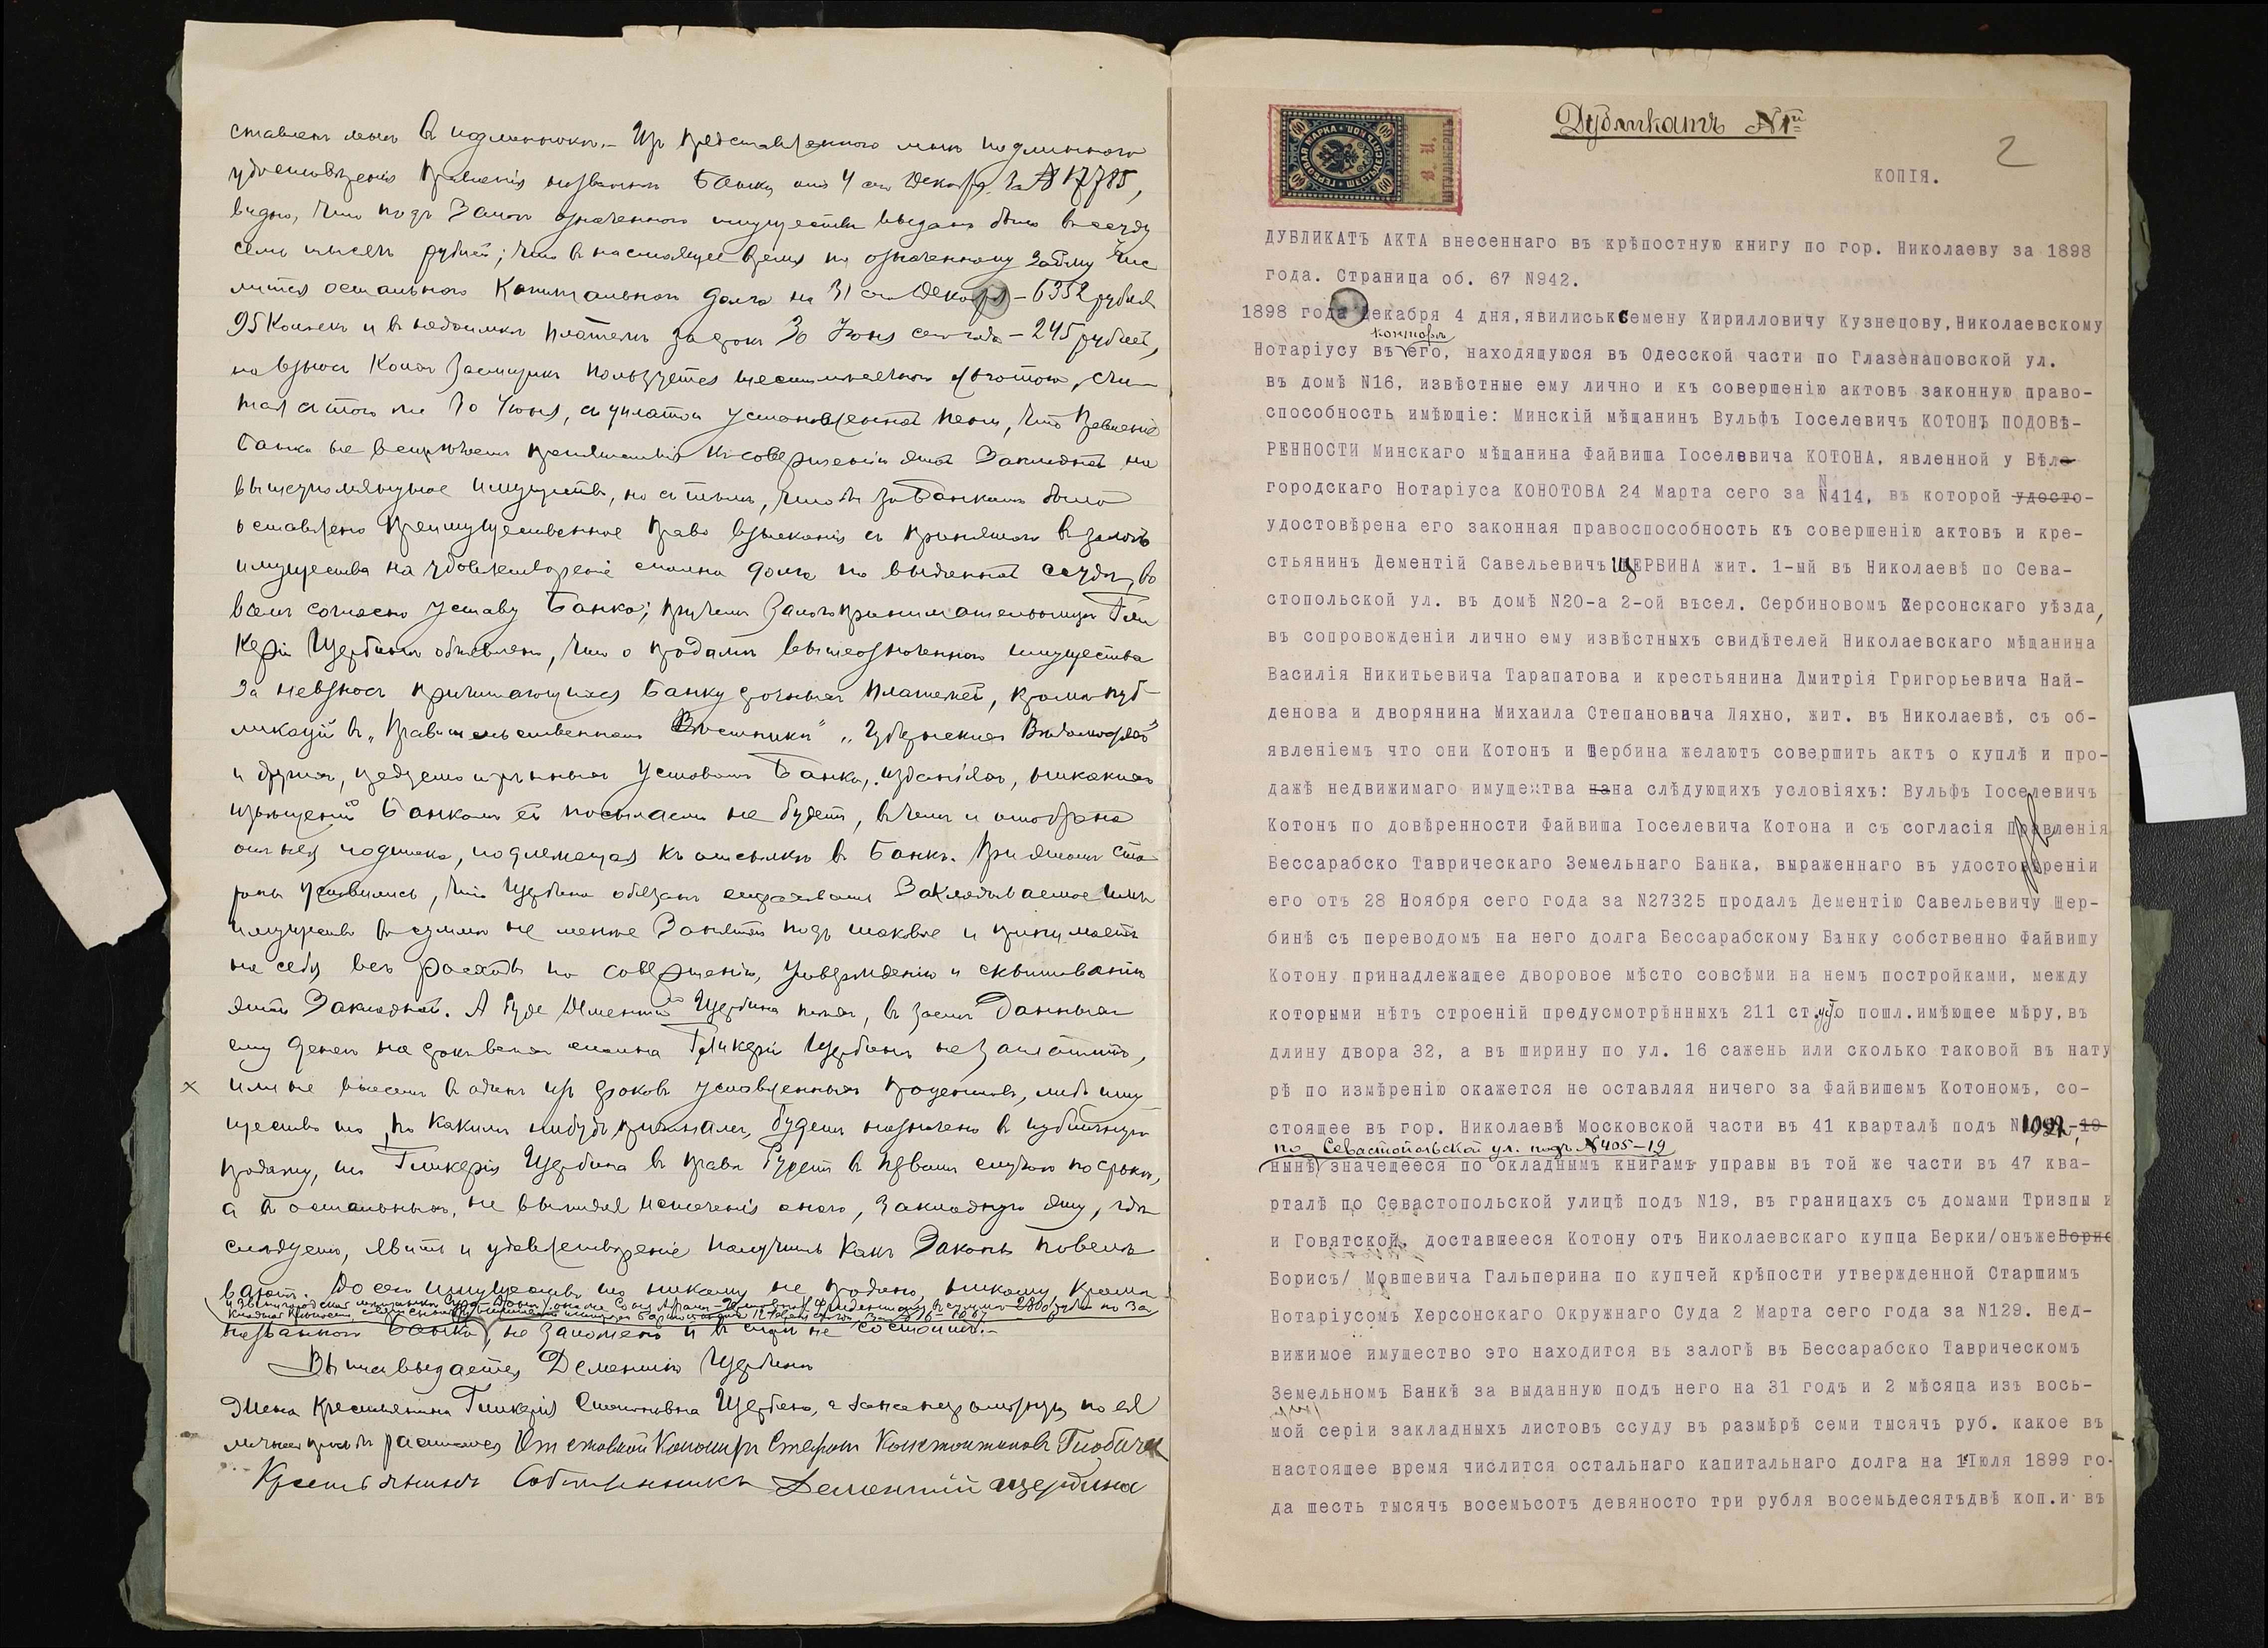 ставленъ мнѣ въ подлинникѣ.- Изъ представленнаго мнѣ подлиннаго
удостовѣренія Правленія названнаго Банка, отъ 4 сего Декабря за № 17785,
видно, что подъ залогъ означеннаго имущества выдано было въ ссуду
семь тысячъ рублей; что въ настоящее время по означенному займу чис
лится остального капитальнаго долга на 31 сего Декабря - 6352 рубля
95 копѣекъ и въ недоимкѣ платежъ за срокъ 30 Іюня сего года - 245 рублей,
на взносъ коего заемщикъ пользуется шестимѣсячною льготою, счи-
тая съ того же 30 Іюня, съ уплатою установленной пени, что Правленіе
Банка не встрѣчаетъ препятствія къ совершенію этой закладной на
вышеупомянутое имущество, но съ тѣмъ, чтобы за Банкомъ было
оставлено преимущественное право взысканія съ принятаго въ залогъ
имущества на удовлетвореніе сполна долга по выданной ссудѣ, во
всемъ согласно уставу Банка; причемъ залогопринимательницѣ Гли
керіи Щербина объявлено, что о продажѣ вышеозначеннаго имущества
за невзносъ причитающихся Банку срочныхъ платежей, кромѣ пуб-
ликацій въ „Правительственномъ Вѣстникѣ“ „Губернскихъ Вѣдомостяхъ“
и другихъ, предусмотрѣнныхъ Уставомъ Банка, изданіяхъ, никакихъ
извѣщеній Банкомъ ей посылаемо не будетъ, въ чемъ и отобрана
отъ нея подписка, подлежащая къ отсылкѣ въ Банкъ. При этомъ сто
роны условились, что Щербина обязанъ страховать закладываемое имъ
имущество въ суммѣ не менѣе занятой подъ таковое и принимаетъ
на себя всѣ расходы по совершенію, утвержденію и сквитованію
этой закладной. А буде Дементій Щербина на тѣхъ, въ заемъ данныхъ
ему денегъ на срокъ всѣхъ сполна Гликеріи Щербинѣ не заплатитъ,
или не внесетъ въ одинъ изъ сроковъ условленныхъ процентовъ, либо иму
щество то, по какимъ нибудь причинамъ, будетъ назначено въ публичную
продажу, то Гликерія Щербина въ правѣ будетъ въ первомъ случаѣ по срокѣ,
а въ остальныхъ, не выжидая истеченія онаго, закладную эту, гдѣ
слѣдуетъ, явить и удовлетвореніе получить какъ Законы повелѣ
ваютъ. До сего имущество то никому не продано, никому, кромѣ
названнаго Банка, не заложено и въ спорѣ не состоитъ.-
Выпись выдается Дементію Щербинѣ
Жена крестьянина Гликерія Степановна Щербина, а за неграмотную по ея
личной просьбѣ расписался Отставной Канониръ Стефанъ Константиновъ
Крестьянинъ Собственникъ Дементий Щербина
Дубликатъ №1й
2
КОПІЯ.
ДУБЛИКАТЪ АКТА внесеннаго въ крѣпостную книгу по гор. Николаеву за 1898
года. Страница об. 67 N942.
1898 года Декабря 4 дня, явилиськСемену Кирилловичу Кузнецову, Николаевскому
конторѣ
Нотаріусу въ его, находящуюся въ Одесской части по Глазенаповской ул.
въ домѣ N16, извѣстные ему лично и къ совершенію актовъ законную право-
способность имѣющіе: Минскій мѣщанинъ Вульфъ Іоселевичъ КОТОНЪ ПОДОВѢ-
РЕННОСТИ Минскаго мѣщанина Файвиша Іоселевича КОТОНА, явленной у Бѣло
городскаго Нотаріуса КОНОТОВА 24 Марта сего за N414, въ которой удосто-
удостовѣрена его законная правоспособность къ совершенію актовъ и кре-
стьянинъ Дементій Савельевичъ ЩЕРБИНА жит. 1-ый въ Николаевѣ по Сева-
стопольской ул. въ домѣ N20-а 2-ой въсел. Сербиновомъ Херсонскаго уѣзда,
въ сопровожденіи лично ему извѣстныхъ свидѣтелей Николаевскаго мѣщанина
Василія Никитьевича Тарапатова и крестьянина Дмитрія Григорьевича Най-
денова и дворянина Михаила Степановича Ляхно, жит. въ Николаевѣ, съ об-
явленіемъ что они Котонъ и Щербина желаютъ совершить актъ о куплѣ и про-
дажѣ недвижимаго имущества нана слѣдующихъ условіяхъ: Вульфъ Іоселевичъ
Котонъ по довѣренности Файвиша Іоселевича Котона и съ согласія Правленія
Бессарабско Таврическаго Земельнаго Банка, выраженнаго въ удостовѣреніи
его отъ 28 Ноября сего года за N27325 продалъ Дементію Савельевичу Щер-
бинѣ съ переводомъ на него долга Бессарабскому Банку собственно Файвишу
Котону принадлежащее дворовое мѣсто совсѣми на немъ постройками, между
которыми нѣтъ строеній предусмотрѣнныхъ 211 ст. уст о пошл. имѣющее мѣру, въ
длину двора 32, а въ ширину по ул. 16 сажень или сколько таковой въ нату
рѣ по измѣренію окажется не оставляя ничего за Файвишемъ Котономъ, со-
стоящее въ гор. Николаевѣ Московской части въ 41 кварталѣ подъ N
по Севастопольской ул. подъ №405-19
нынѣ значещееся по окладнымъ книгамъ управы въ той же части въ 47 ква-
рталѣ по Севастопольской улицѣ подъ N19, въ границахъ съ домами Тризпы и
и Говятской, доставшееся Котону отъ Николаевскаго купца Берки/онъжеБорис
Борисъ/ Мовшевича Гальперина по купчей крѣпости утвержденной Старшимъ
Нотаріусомъ Херсонскаго Окружнаго Суда 2 Марта сего года за N129. Нед-
вижимое имущество это находится въ залогѣ въ Бессарабско Таврическомъ
Земельномъ Банкѣ за выданную подъ него на 31 годъ и 2 мѣсяца изъ вось-
мой серіи закладныхъ листовъ ссуду въ размѣрѣ семи тысячъ руб. какое въ
настоящее время числится остальнаго капитальнаго долга на 1 Іюля 1899 го-
да шесть тысячъ восемьсотъ девяносто три рубля восемьдесятъдвѣ коп. и въ